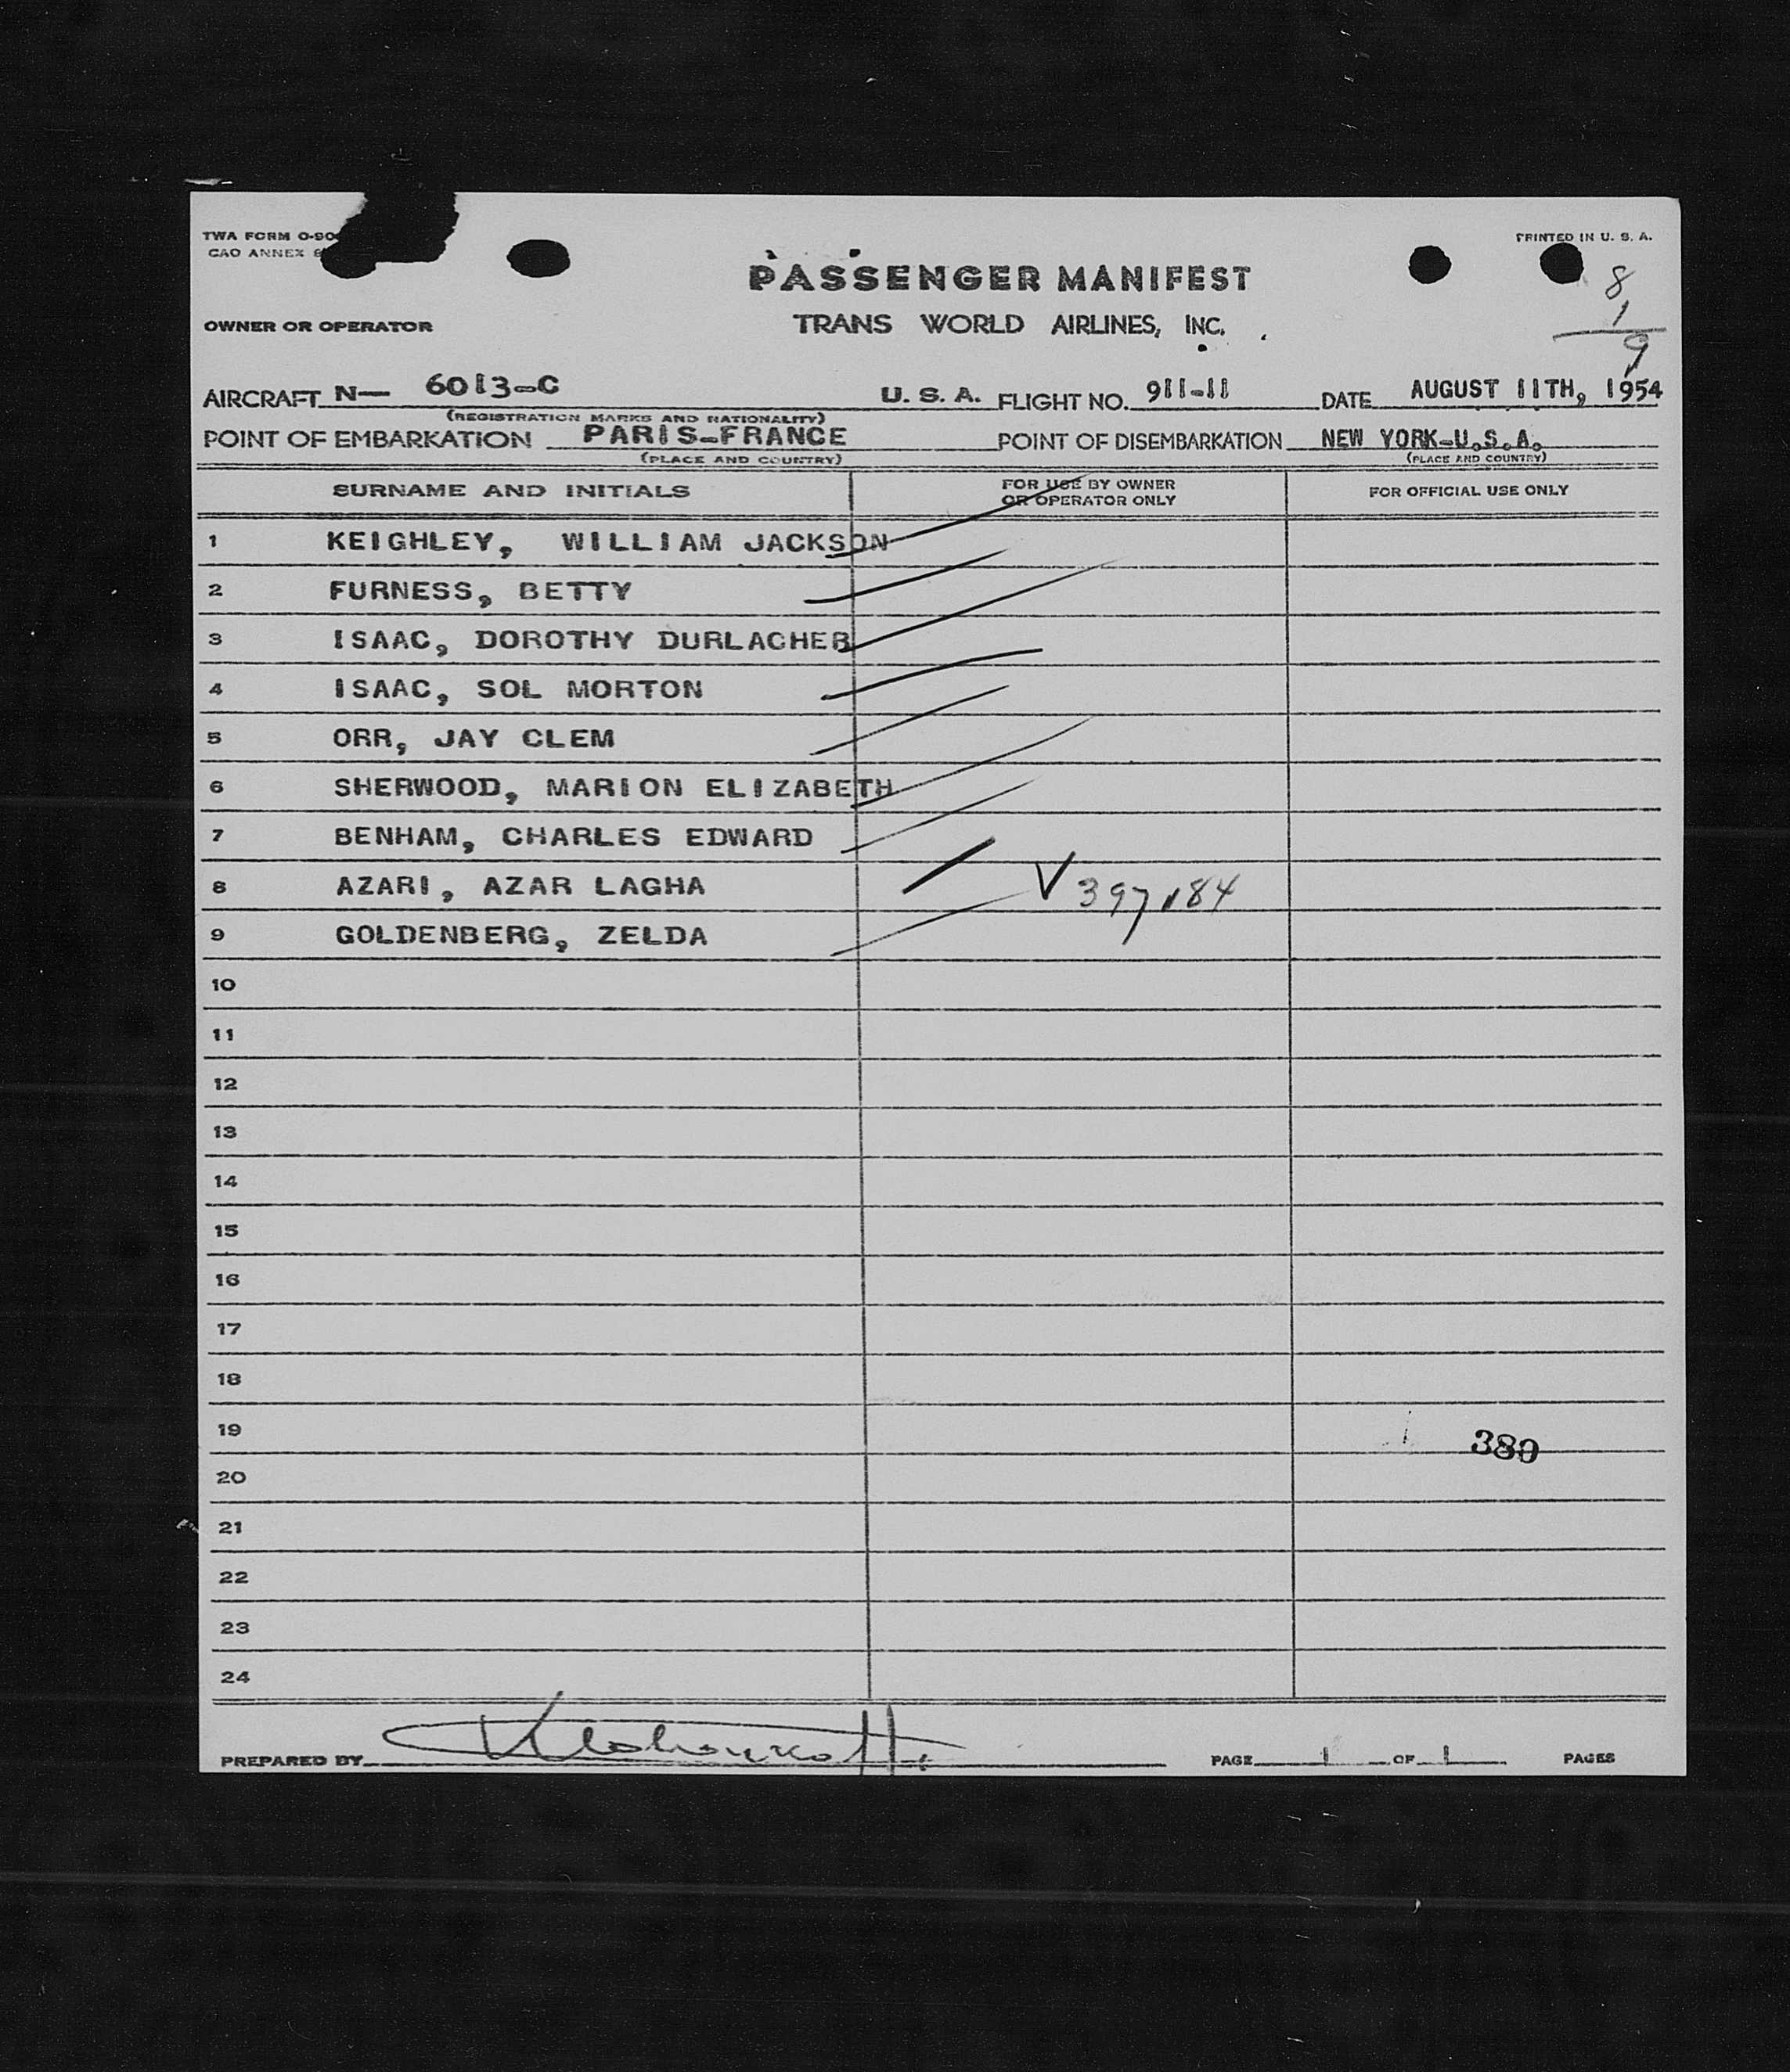 TWA FORM O-90
CAO ANNEX
PRINTED IN U. S. A.
PASSENGER MANIFEST
8
1
9
OWNER OR OPERATOR
TRANS WORLD AIRLINES, INC.
AIRCRAFT N— 6013-C U. S. A. FLIGHT NO. 911-11 DATE AUGUST 11TH, 1954
(REGISTRATION MARKS AND NATIONALITY)
POINT OF EMBARKATION PARIS-FRANCE POINT OF DISEMBARKATION NEW YORK-U.S.A.
(PLACE AND COUNTRY) (PLACE AND COUNTRY)
SURNAME AND INITIALS FOR USE BY OWNER OR OPERATOR ONLY FOR OFFICIAL USE ONLY
1 KEIGHLEY, WILLIAM JACKSON
2 FURNESS, BETTY
3 ISAAC, DOROTHY DURLACHER
4 ISAAC, SOL MORTON
5 ORR, JAY CLEM
6 SHERWOOD, MARION ELIZABETH
7 BENHAM, CHARLES EDWARD
8 AZARI, AZAR LAGHA
9 GOLDENBERG, ZELDA
10
11
12
13
14
15
16
17
18
19 380
20
21
22
23
24
PREPARED BY PAGE 1 OF 1 PAGES